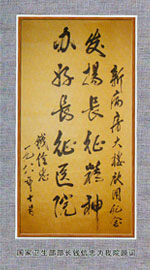 新病房大楼启用纪念
发扬长征精神
办好长征医院
钱信忠
一九八八年十月
国家卫生部部长钱信忠为我院题词